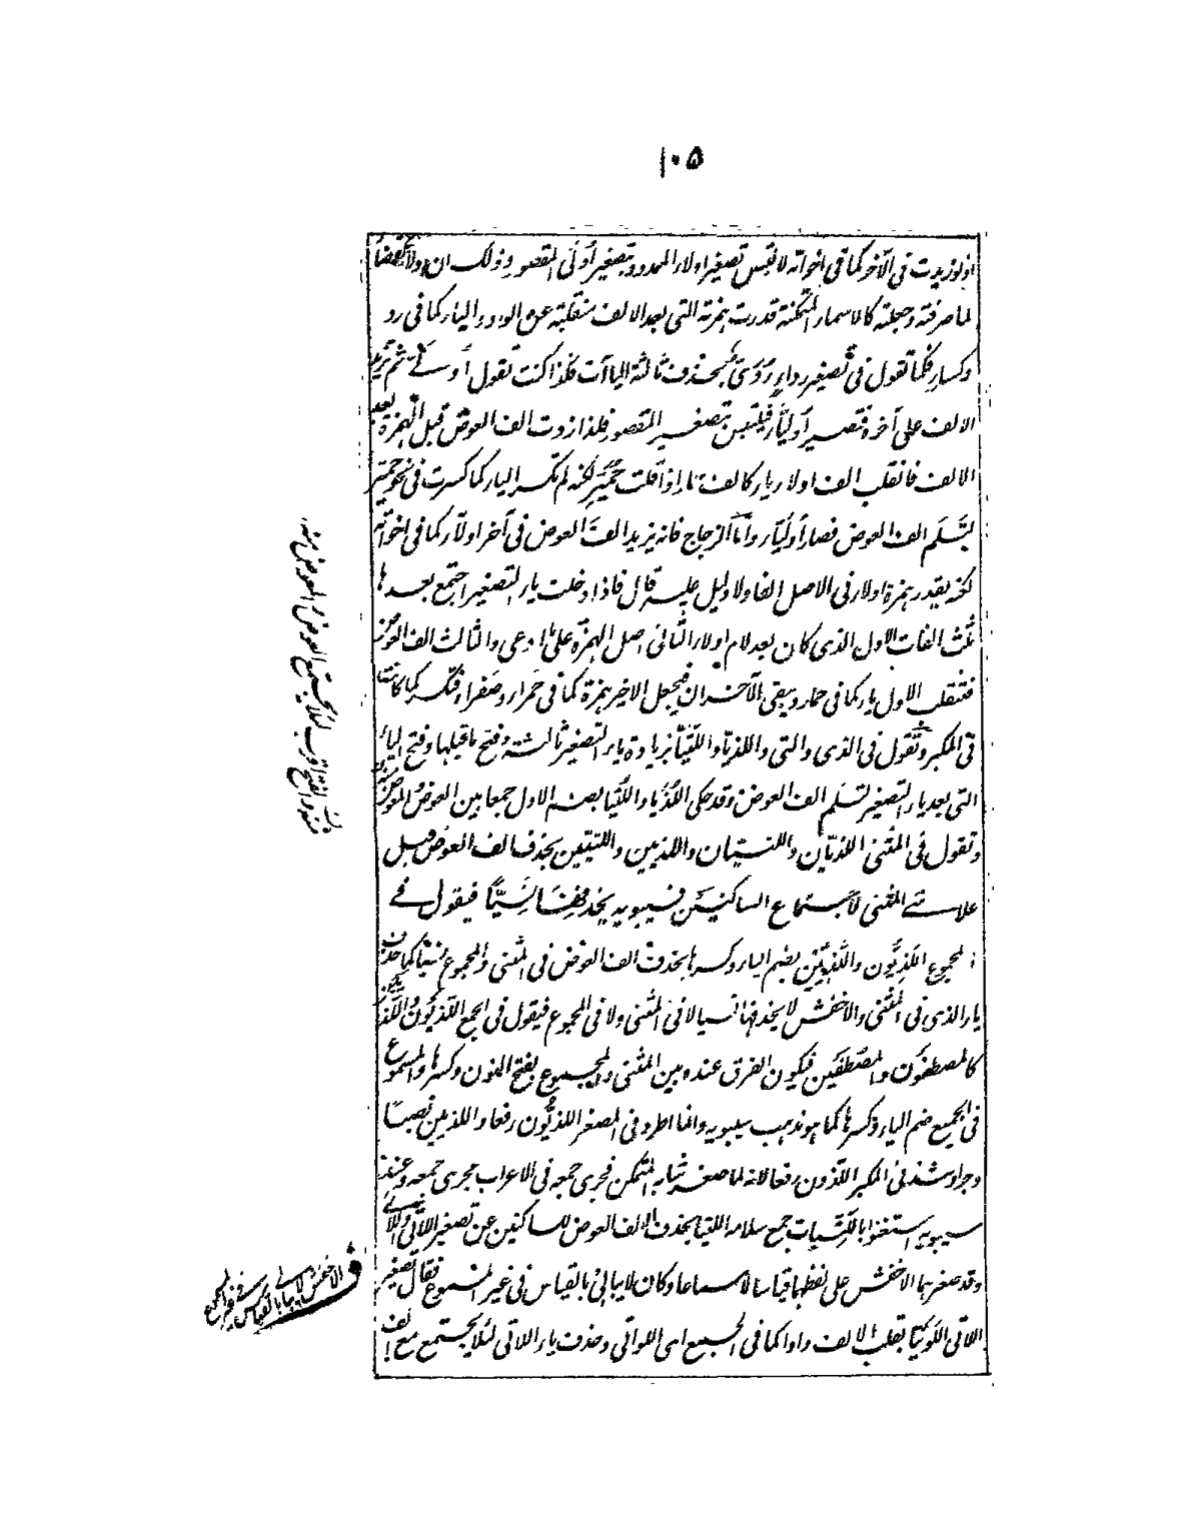 ١٠٥
اذ لو زيدت فى الآخر كما فى اخواته لالتبس تصغير اولاء الممدود بتصغير أولى المقصور وذلك ان اولاء ايضا
لما صرفته وجعلته كالاسماء المتمكنة قدرت همزته التى بعد الالف منقلبة عن الواو والياء كما فى رد
وكساء فكما تقول فى تصغير رداء رُدَىّ بحذف ثالثة الياآت فكذا كنت تقول أو ثم تزيد
الالف على آخره فتصير أوليّا فيلتبس بتصغير المقصور فلذا زدت الف العوض قبل الهمزة بعد
الالف فانقلب الف اولاء ياء كالف اذا قلت حُمَيِّر لكنه لم تكسر الياء كما كسرت فى نحو حُمَيِّر
لتسلم الف العوض فصار أوليّاء وأما الزجاج فانه يزيد الف العوض فى آخر اولاء كما فى اخواته
لكنه يقدر همزة اولاء فى الاصل الفا ولا دليل عليه قال فاذا دخلت ياء التصغير اجتمع بعدها
ثلث الفات الاول الذى كان بعد لام اولاء الثانى اصل الهمزة على ما ادعى والثالث الف العوض
فتنقلب الاول ياء كما فى حمار ويبقى الآخران فيجعل الاخير همزة كما فى حمراء وصفراء فتكسر كما كانت
فى المكبر وتقول فى الذى والتى واللذيا واللتيا بزيادة ياء التصغير ثالثة وفتح ما قبلها وفتح الياء
التى بعد ياء التصغير لتسلم الف العوض وقد حكى اللُّذَيّا واللُّتَيّا بضم الاول جمعا بين العوض والمعوض منه
وتقول فى المثنى اللذيان واللتيان واللذيين واللتيين بحذف الف العوض قبل
علامتى المثنى لاجتماع الساكنين فسيبويه يحذفها نسيًا فيقول فى
المجموع اللَّذَيُّون واللَّذَيِّين بضم الياء وكسرها بحذف الف العوض فى المثنى والمجموع نسيا كما حذف
ياء الذى فى المثنى والاخفش لا يحذفها نسيا لا فى المثنى ولا فى المجموع فيقول فى الجمع اللَّذَيَّون واللَّذَيَّين
كالمصطفَون والمصطفَين فيكون الفرق عنده بين المثنى والمجموع بفتح النون وكسرها والمسموع
فى الجمع ضم الياء وكسرها كما هو مذهب سيبويه وانما اطرد فى المصغر اللذيّون رفعا واللذيين نصبا
وجرا وشذ فى المكبر اللذون رفعا لانه لما صغر شابه المتمكن فجرى جمعه فى الاعراب مجرى جمعه وعند
سيبويه استغنوا باللَّتَيَّات جمع سلامة اللتيا بحذف الف العوض للساكنين عن تصغير اللاتى واللائى
وقد صغرهما الاخفش على لفظهما قياسا لا سماعا وكان لا يبالى بالقياس فى غير المسموع فقال تصغير
اللاتى اللويتا بقلب الالف واوا كما فى الجمع اى اللواتى وحذف ياء اللاتى لئلا يجتمع مع الف
والفتح اقرب لئلا يجتمع العوض والمعوض منه
الاخفش لا يبالى بالقياس فى غير المسموع